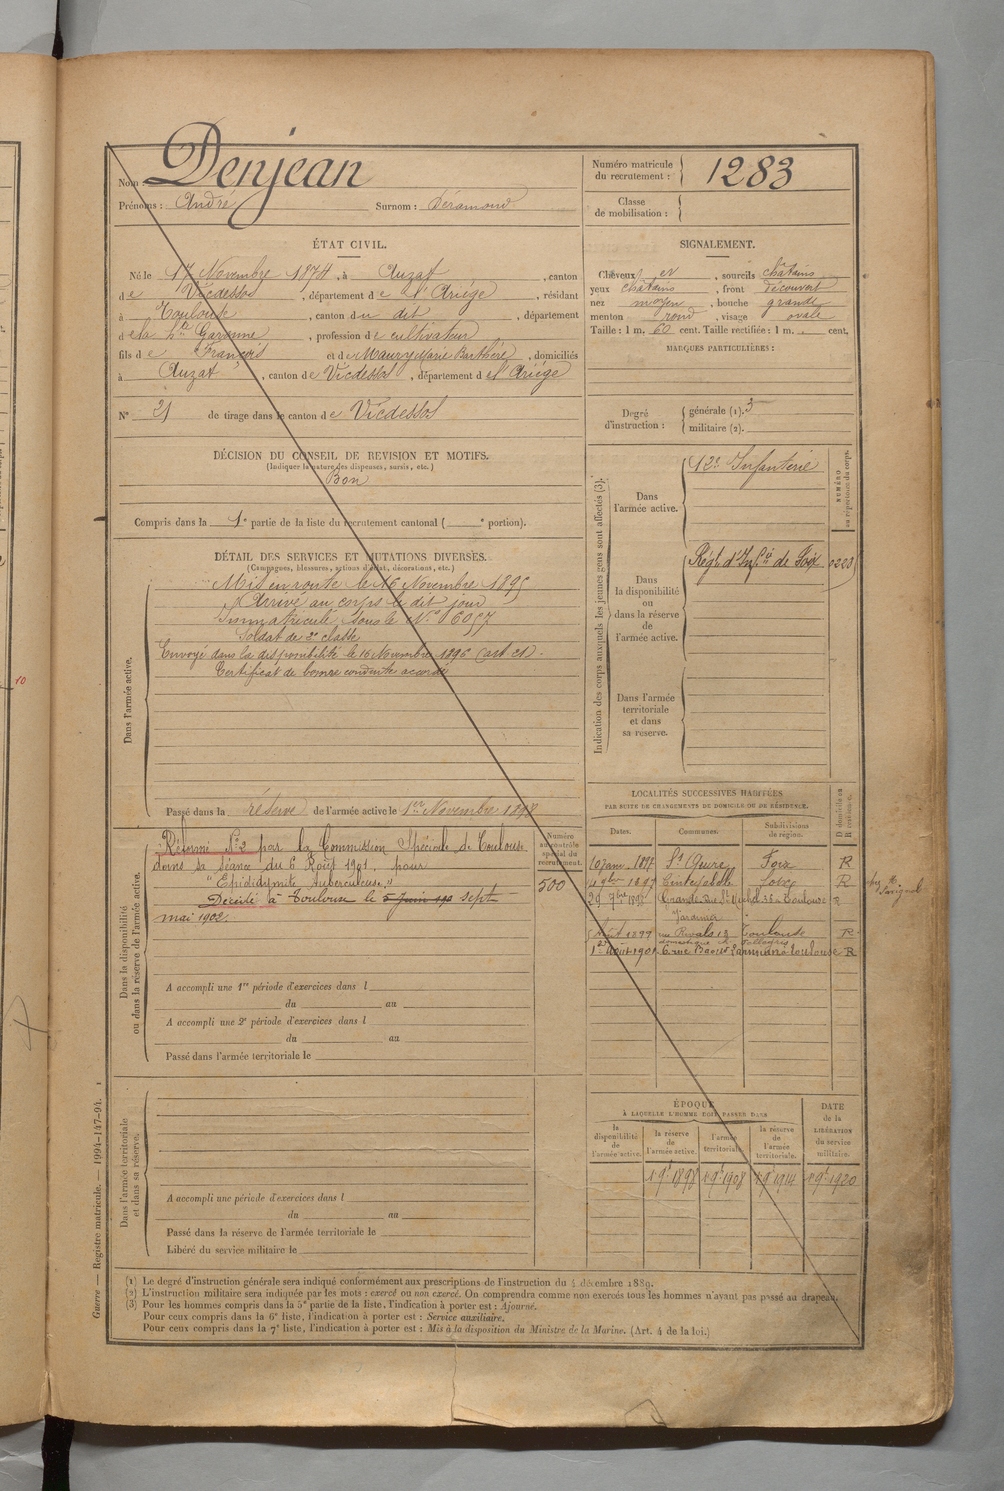 Nom : Denjean
Prénoms : André Surnom : Déramond
Numéro matricule
du recrutement : 1283
Classe
de mobilisation :
ÉTAT CIVIL.
Né le 17 Novembre 1874, à Auzat, canton
de Vicdessos, département de l'Ariége, résidant
à Toulouse, canton du dit, département
de la Hte Garonne, profession de cultivateur
fils de François et de Maury Marie Barthère, domiciliés
à Auzat, canton de Vicdessos, département de l'Ariége
N° 21 de tirage dans le canton de Vicdessos
SIGNALEMENT.
Cheveux et, sourcils châtains
yeux châtains, front découvert
nez moyen, bouche grande
menton rond, visage ovale
Taille : 1 m. 60 cent. Taille rectifiée : 1 m. cent.
MARQUES PARTICULIÈRES :
Degré
d'instruction :
générale (1). 3
militaire (2).
DÉCISION DU CONSEIL DE REVISION ET MOTIFS.
(Indiquer la nature des dispenses, sursis, etc.)
Bon
Compris dans la 1e partie de la liste du recrutement cantonal ( e portion).
DÉTAIL DES SERVICES ET MUTATIONS DIVERSES.
(Campagnes, blessures, actions d'éclat, décorations, etc.)
Dans l'armée active.
Mis en route le 16 Novembre 1895
Arrivé au corps le dit jour
Immatriculé sous le N° 6057
Soldat de 2e classe
Envoyé dans la disponibilité le 16 Novembre 1896 (art 21).
Certificat de bonne conduite accordé
Passé dans la réserve de l'armée active le 1er Novembre 1898
Indication des corps auxquels les jeunes gens sont affectés (3).
NUMÉRO
au répertoire du corps.
Dans
l'armée active.
12e Infanterie
Dans
la disponibilité
ou
dans la réserve
de
l'armée active.
Régt d'Infie de Foix 0223
Dans l'armée
territoriale
et dans
sa réserve.
Dans la disponibilité
ou dans la réserve de l'armée active.
Numéro
au contrôle
spécial du
recrutement.
500
Réformé N° 2 par la Commission Spéciale de Toulouse
dans sa séance du 6 Août 1901 pour
"Epididymite tuberculeuse"
Décédé à Toulouse le 5 Juin 190 sept
mai 1902.
A accompli une 1re période d'exercices dans l
du au
A accompli une 2e période d'exercices dans l
du au
Passé dans l'armée territoriale le
LOCALITÉS SUCCESSIVES HABITÉES
PAR SUITE DE CHANGEMENTS DE DOMICILE OU DE RÉSIDENCE.
Dates. Communes. Subdivisions
de région. D domicile ou
R résidence.
10 janv. 1897 Foix R
9bre 1897 Cintegabelle R
29 7bre 1898 Grande Rue St Michel 36 Toulouse R
Août 1899 rue Rivals 13 Toulouse R
domestique
Août 1901 6 rue Toulouse R
Dans l'armée territoriale
et dans sa réserve.
A accompli une période d'exercices dans l
du au
Passé dans la réserve de l'armée territoriale le
Libéré du service militaire le
ÉPOQUE
À LAQUELLE L'HOMME DOIT PASSER DANS
la
disponibilité
de
l'armée active.
la réserve
de
l'armée active.
l'armée
territoriale.
la réserve
de
l'armée
territoriale.
DATE
de la
LIBÉRATION
du service
militaire.
1 9b 1898 1 9b 1908 1 9b 1914 1 9b 1920
(1) Le degré d'instruction générale sera indiqué conformément aux prescriptions de l'instruction du 4 décembre 1889.
(2) L'instruction militaire sera indiquée par les mots : exercé ou non exercé. On comprendra comme non exercés tous les hommes n'ayant pas passé au drapeau.
(3) Pour les hommes compris dans la 5e partie de la liste, l'indication à porter est : Ajourné.
Pour ceux compris dans la 6e liste, l'indication à porter est : Service auxiliaire.
Pour ceux compris dans la 7e liste, l'indication à porter est : Mis à la disposition du Ministre de la Marine. (Art. 4 de la loi.)
Guerre — Registre matricule. — 1994-147-94. 1
10